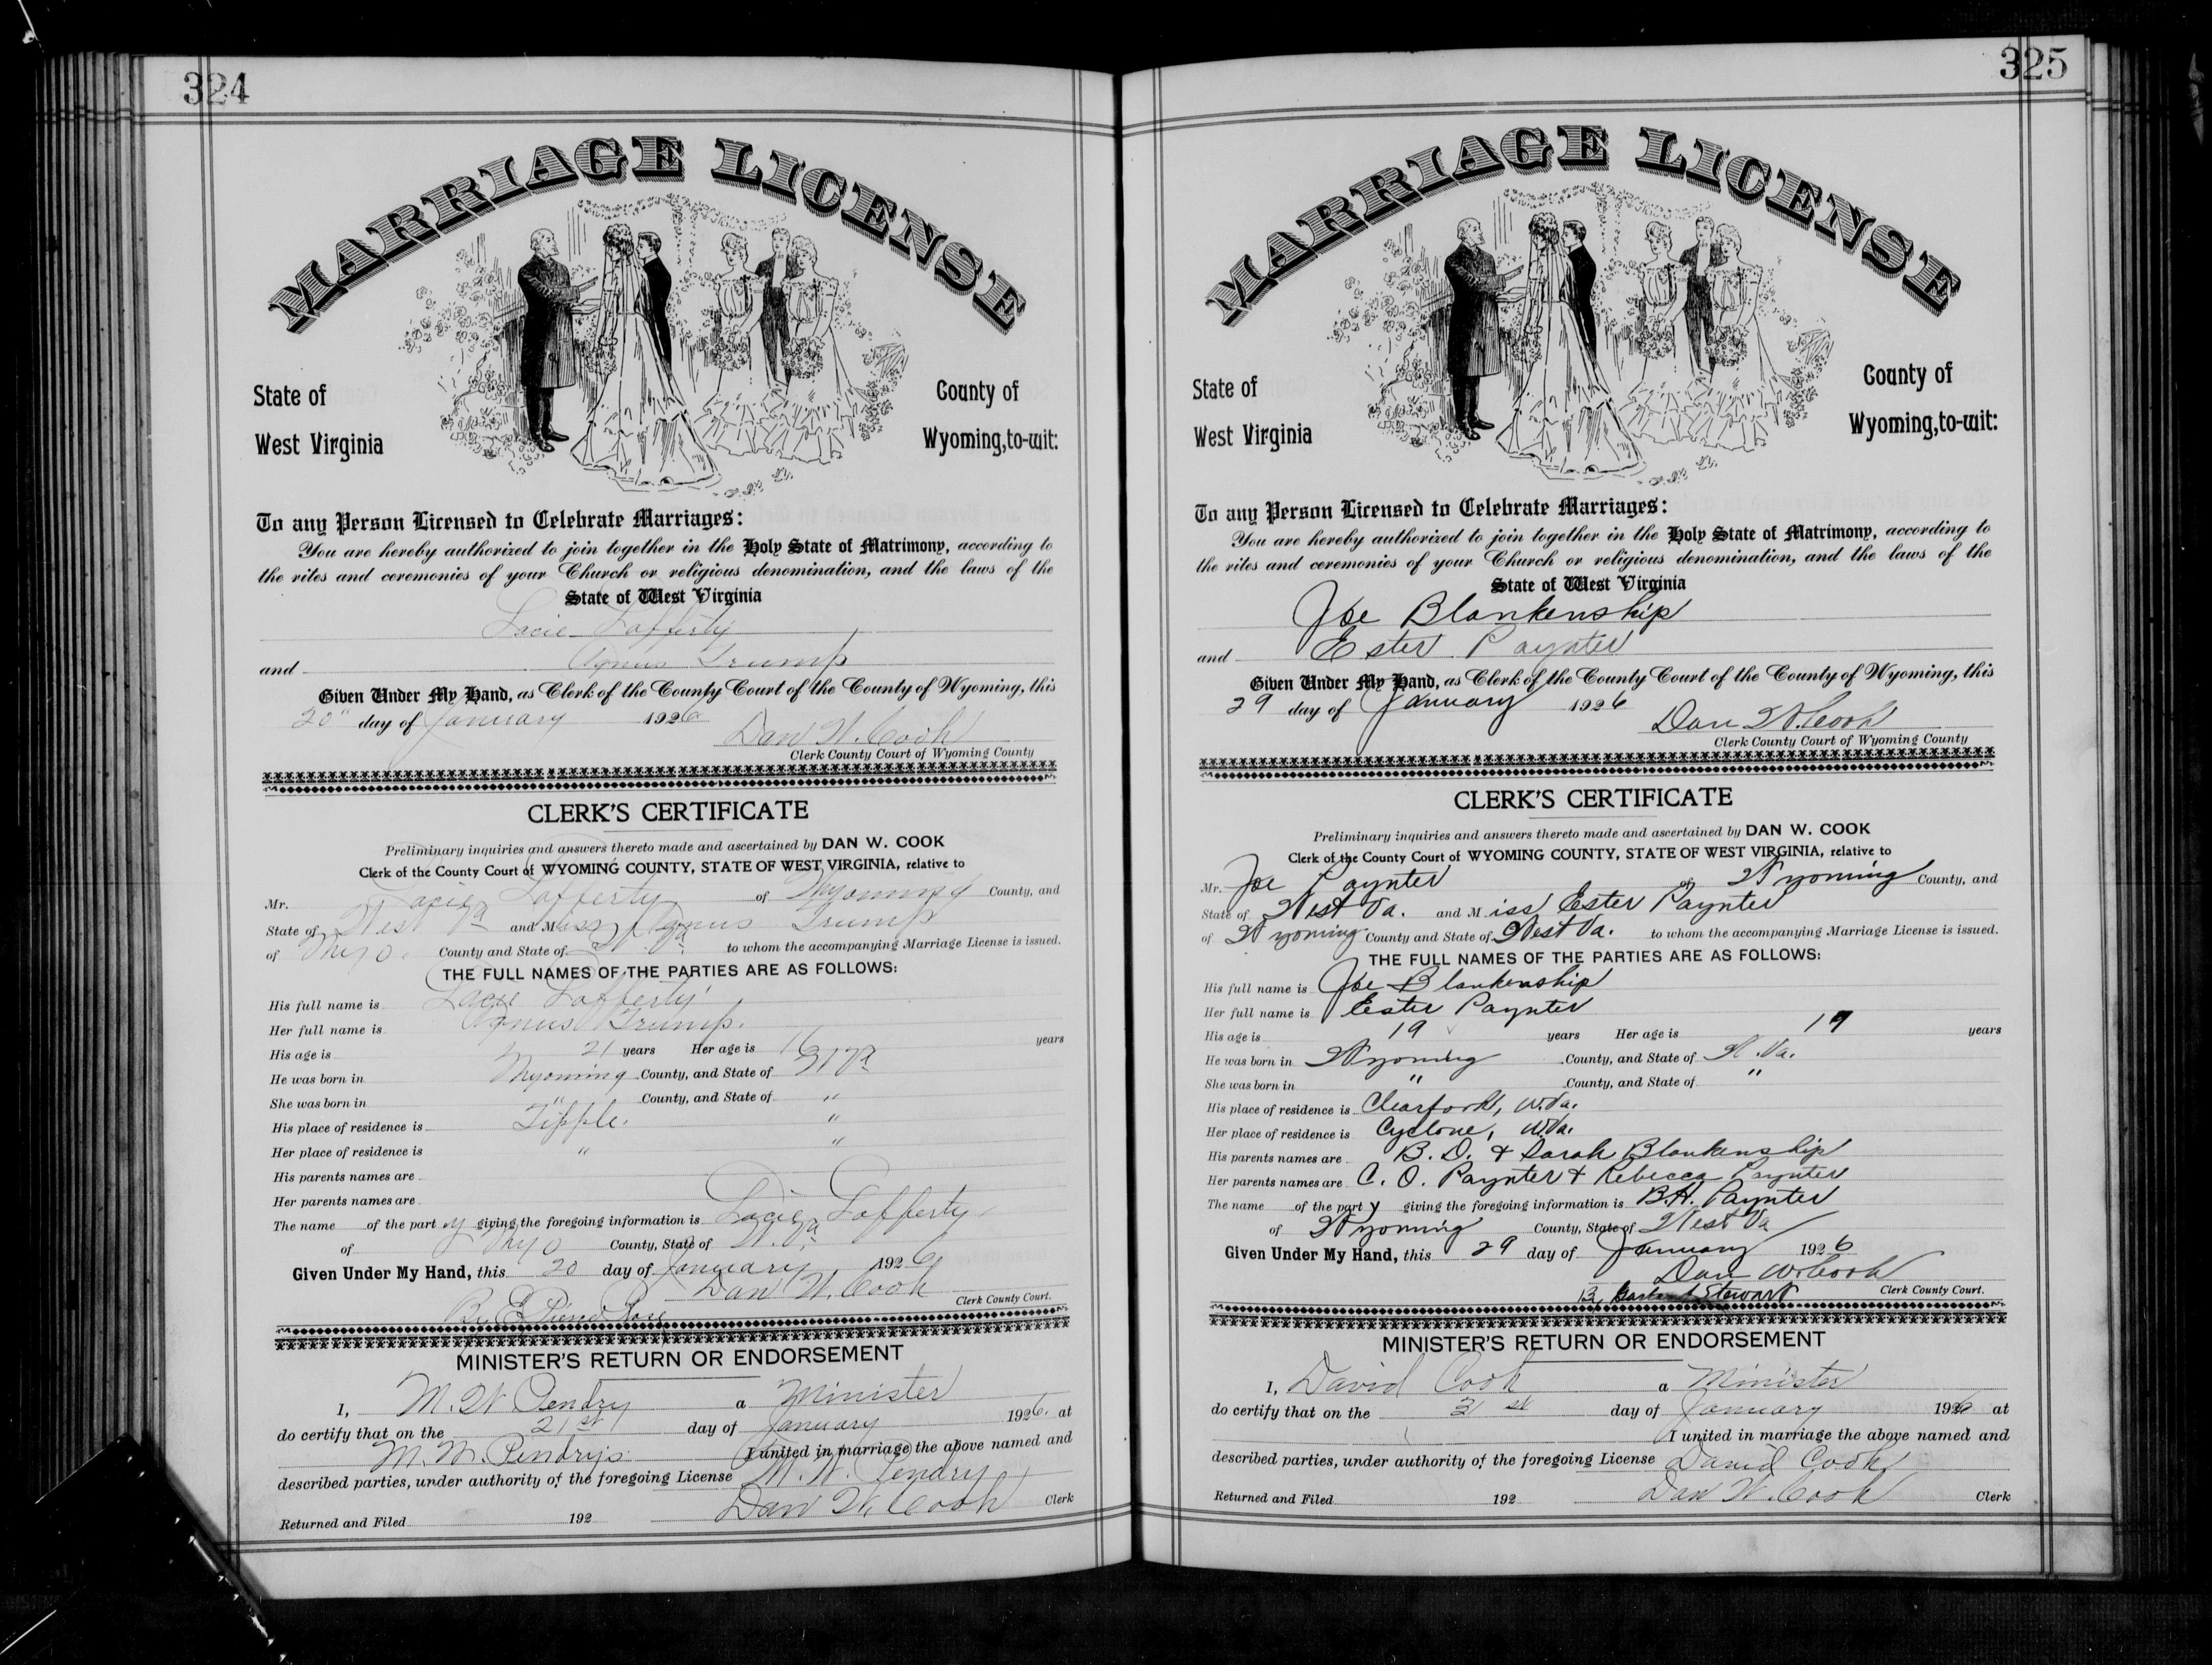 324
MARRIAGE LICENSE
State of
West Virginia
County of
Wyoming, to-wit:
To any Person Licensed to Celebrate Marriages:
You are hereby authorized to join together in the Holy State of Matrimony, according to
the rites and ceremonies of your Church or religious denomination, and the laws of the
State of West Virginia
Lacie Lafferty
and Agnus Trump
Given Under My Hand, as Clerk of the County Court of the County of Wyoming, this
20" day of January 1926
Dan W. Cook
Clerk County Court of Wyoming County
CLERK'S CERTIFICATE
Preliminary inquiries and answers thereto made and ascertained by DAN W. COOK
Clerk of the County Court of WYOMING COUNTY, STATE OF WEST VIRGINIA, relative to
Mr. Lacie Lafferty of Wyoming County, and
State of West Va and Miss Agnus Trump
of Wyo. County and State of W. Va to whom the accompanying Marriage License is issued.
THE FULL NAMES OF THE PARTIES ARE AS FOLLOWS:
His full name is Lacie Lafferty
Her full name is Agnus Trump.
His age is 21 years Her age is 16 years
He was born in Wyoming County, and State of W Va
She was born in " County, and State of "
His place of residence is Tipple. "
Her place of residence is " "
His parents names are
Her parents names are
The name of the part y giving the foregoing information is Lacie Lafferty
of Wyo County, State of W. Va
Given Under My Hand, this 20 day of January 1926
Dan W. Cook
Clerk County Court.
By E.
MINISTER'S RETURN OR ENDORSEMENT
I, M. W Pendry a Minister
do certify that on the 21st day of January 1926. at
M. W. Pendry's I united in marriage the above named and
described parties, under authority of the foregoing License M. W. Pendry
Returned and Filed 192 Dan W. Cook Clerk
325
MARRIAGE LICENSE
State of
West Virginia
County of
Wyoming, to-wit:
To any Person Licensed to Celebrate Marriages:
You are hereby authorized to join together in the Holy State of Matrimony, according to
the rites and ceremonies of your Church or religious denomination, and the laws of the
State of West Virginia
Joe Blankenship
and Ester Paynter
Given Under My Hand, as Clerk of the County Court of the County of Wyoming, this
29 day of January 1926
Dan W. Cook
Clerk County Court of Wyoming County
CLERK'S CERTIFICATE
Preliminary inquiries and answers thereto made and ascertained by DAN W. COOK
Clerk of the County Court of WYOMING COUNTY, STATE OF WEST VIRGINIA, relative to
Mr. Joe Paynter of Wyoming County, and
State of West Va. and Miss Ester Paynter
of Wyoming County and State of West Va. to whom the accompanying Marriage License is issued.
THE FULL NAMES OF THE PARTIES ARE AS FOLLOWS:
His full name is Joe Blankenship
Her full name is Ester Paynter
His age is 19 years Her age is years
He was born in Wyoming County, and State of W. Va.
She was born in " County, and State of "
His place of residence is Clearfork, W.Va.
Her place of residence is Cyclone, W.Va.
His parents names are B. D. & Sarah Blankenship
Her parents names are C. O. Paynter & Rebecca Paynter
The name of the part y giving the foregoing information is B.H. Paynter
of Wyoming County, State of West Va
Given Under My Hand, this 29 day of January 1926
Dan W. Cook
Stewart Clerk County Court.
MINISTER'S RETURN OR ENDORSEMENT
I, David Cook a Minister
do certify that on the 31st day of January 1926 at
I united in marriage the above named and
described parties, under authority of the foregoing License David Cook
Returned and Filed 192 Dan W. Cook Clerk